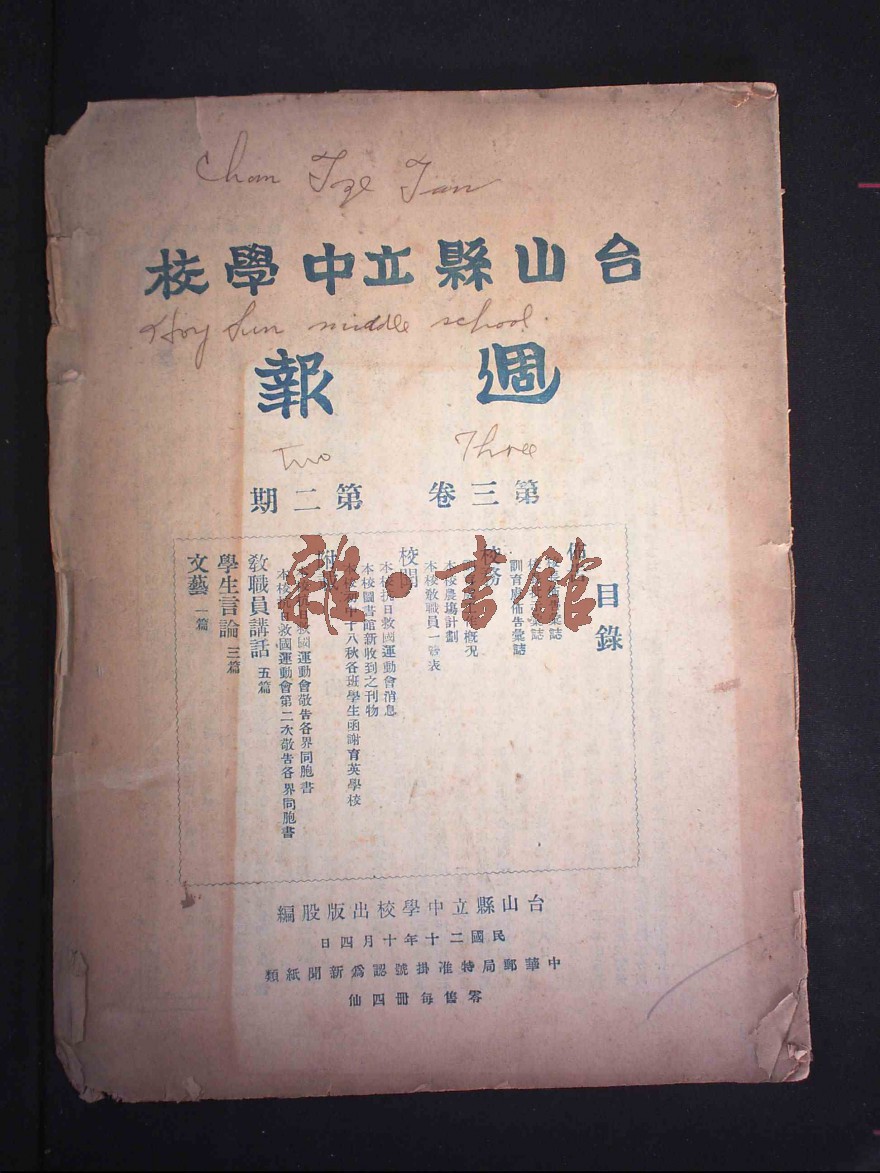 Chan Tze Tan
台山縣立中學校
Hoy Sun middle school.
週報
Three Two
第三卷 第二期
目錄
佈告
彙誌
訓育處佈告彙誌
校務
概況
本校農塲計劃
本校敎職員一覽表
校聞
本校抗日救國運動會消息
本校圖書館新收到之刊物
十八秋各班學生函謝育英學校
附
救國運動會敬告各界同胞書
本校抗日救國運動會第二次敬告各界同胞書
敎職員講話 五篇
學生言論 三篇
文藝 一篇
台山縣立中學校出版股編
民國二十年十月四日
中華郵局特准掛號認爲新聞紙類
零售每冊四仙
雜·書館